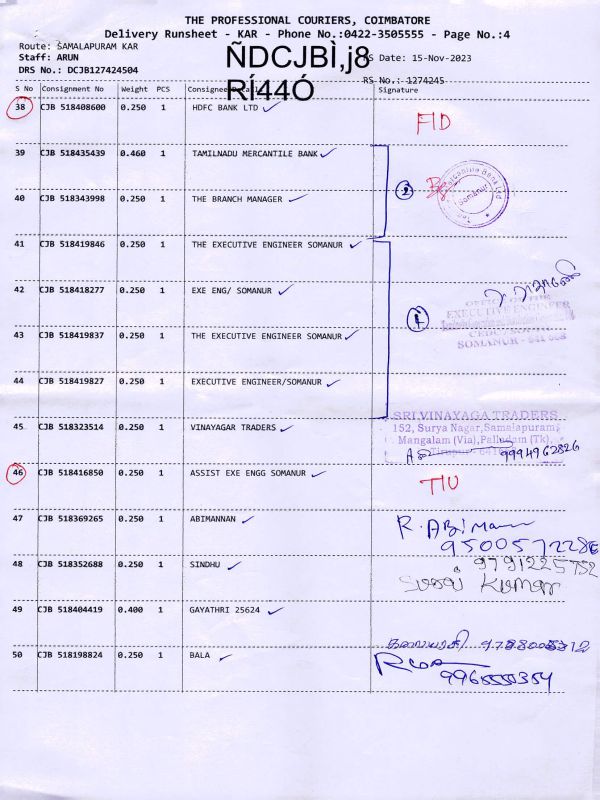 THE PROFESSIONAL COURIERS, COIMBATORE
Delivery Runsheet - KAR - Phone No.:0422-3505555 - Page No.:4
Route: SAMALAPURAM KAR
Staff: ARUN
ÑDCJBÌ,j8
RÍ44Ó
RS Date: 15-Nov-2023
DRS No.: DCJB127424504
RS No.: 1274245
S No Consignment No Weight PCS Consignee Details Signature
38 CJB 518408600 0.250 1 HDFC BANK LTD
FID
39 CJB 518435439 0.460 1 TAMILNADU MERCANTILE BANK
2
Somanur
40 CJB 518343998 0.250 1 THE BRANCH MANAGER
41 CJB 518419846 0.250 1 THE EXECUTIVE ENGINEER SOMANUR
42 CJB 518418277 0.250 1 EXE ENG/ SOMANUR
OFFICE OF THE
EXECUTIVE ENGINEER
4
43 CJB 518419837 0.250 1 THE EXECUTIVE ENGINEER SOMANUR
SOMANUR - 641 668
44 CJB 518419827 0.250 1 EXECUTIVE ENGINEER/SOMANUR
45 CJB 518323514 0.250 1 VINAYAGAR TRADERS
SRI VINAYAGA TRADERS
152, Surya Nagar,Samalapuram,
Mangalam (Via),Palladam (Tk),
9994962826
46 CJB 518416850 0.250 1 ASSIST EXE ENGG SOMANUR
TIU
47 CJB 518369265 0.250 1 ABIMANNAN
48 CJB 518352688 0.250 1 SINDHU
9791225752
Kumar
49 CJB 518404419 0.400 1 GAYATHRI 25624
50 CJB 518198824 0.250 1 BALA